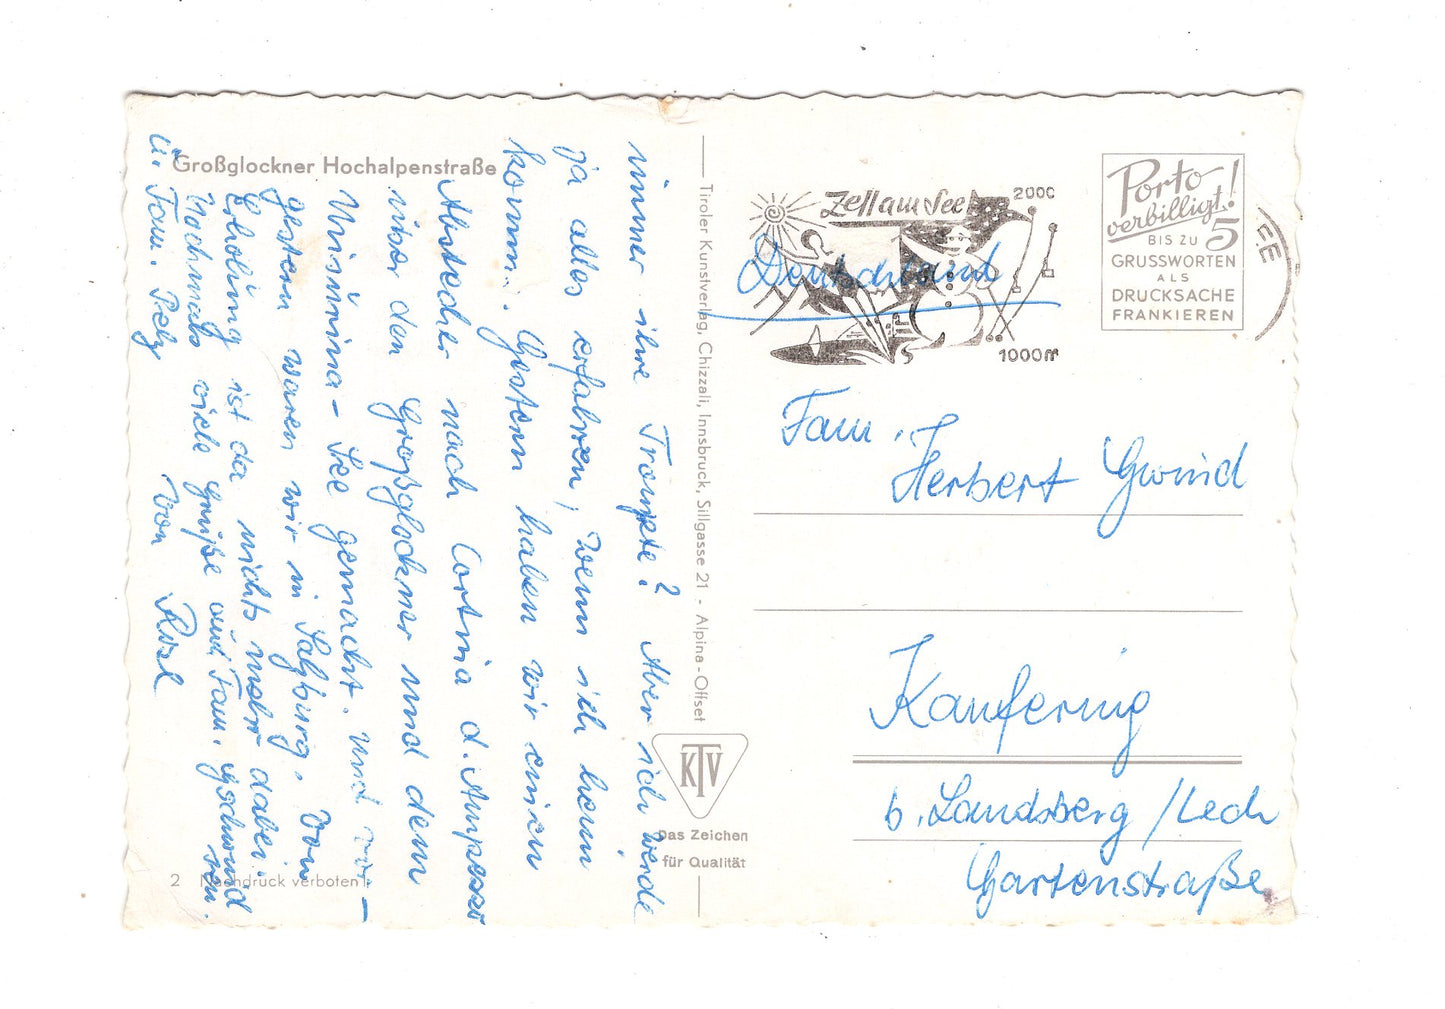 Großglockner Hochalpenstraße
immer ihre Trompete? Aber ich werde
ja alles erfahren, wenn ich heim
komm. Gestern haben wir einen
Abstecher nach Cortina d. Ampezzo
über den Großglockner und dem
Misurina-See gemacht. Und vor-
gestern waren wir in Salzburg. Von
Erholung ist da nichts mehr dabei.
Nochmals viele Grüße auch Fam. Gschwind
sen.
u. Fam. Pely von Rosl
2 Nachdruck verboten!
Tiroler Kunstverlag, Chizzali, Innsbruck, Sillgasse 21 - Alpina-Offset
KTV
Das Zeichen
für Qualität
Zell am See
2000
1000m
EE
Porto
verbilligt!
BIS ZU 5
GRUSSWORTEN
ALS
DRUCKSACHE
FRANKIEREN
Deutschland
Fam.
Herbert Gwind
Kaufering
b. Landsberg/Lech
Gartenstraße